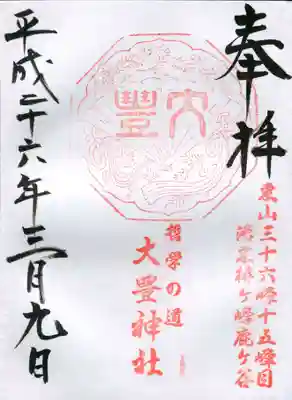 奉拝
東山三十六峰十五峰目
椿ヶ峰鹿ヶ谷
大豐
哲学の道
大豊神社
平成二十六年三月九日